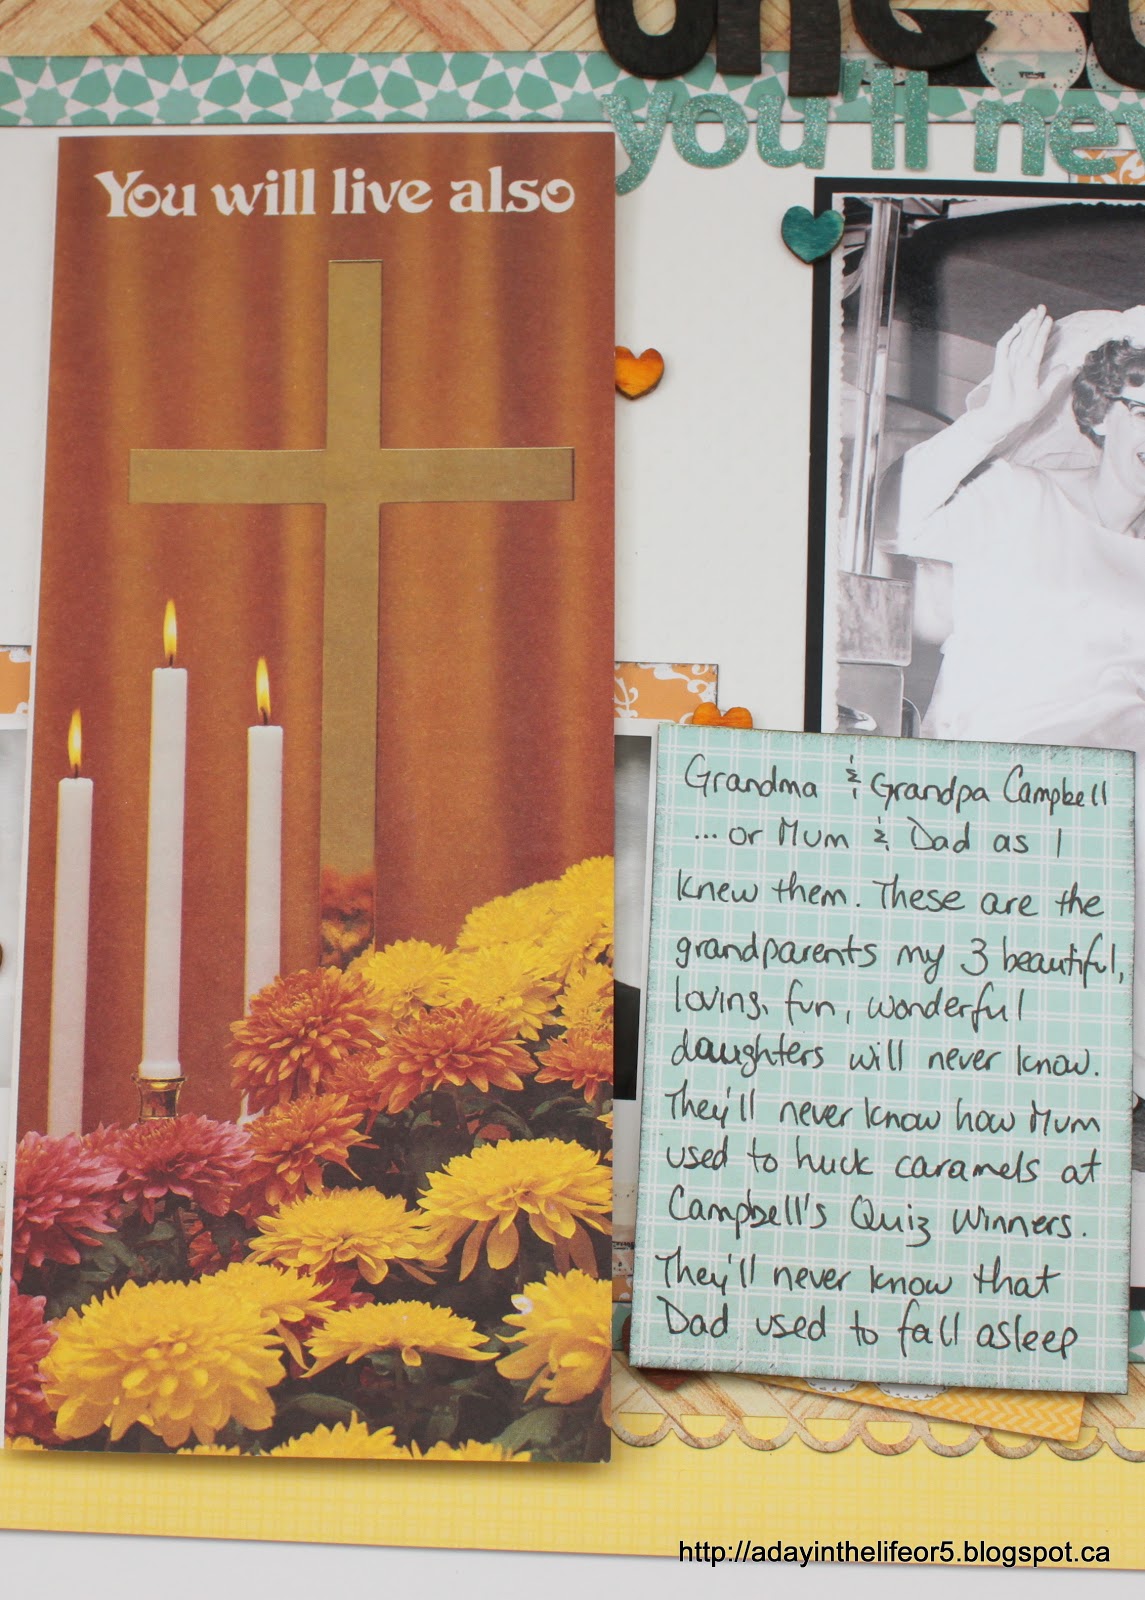 you'll
You will live also
Grandma & Grandpa Campbell
... or Mum & Dad as I
knew them. These are the
grandparents my 3 beautiful,
loving, fun, wonderful
daughters will never know.
They'll never know how Mum
used to huck caramels at
Campbell's Quiz Winners.
They'll never know that
Dad used to fall asleep
http://adayinthelifeor5.blogspot.ca